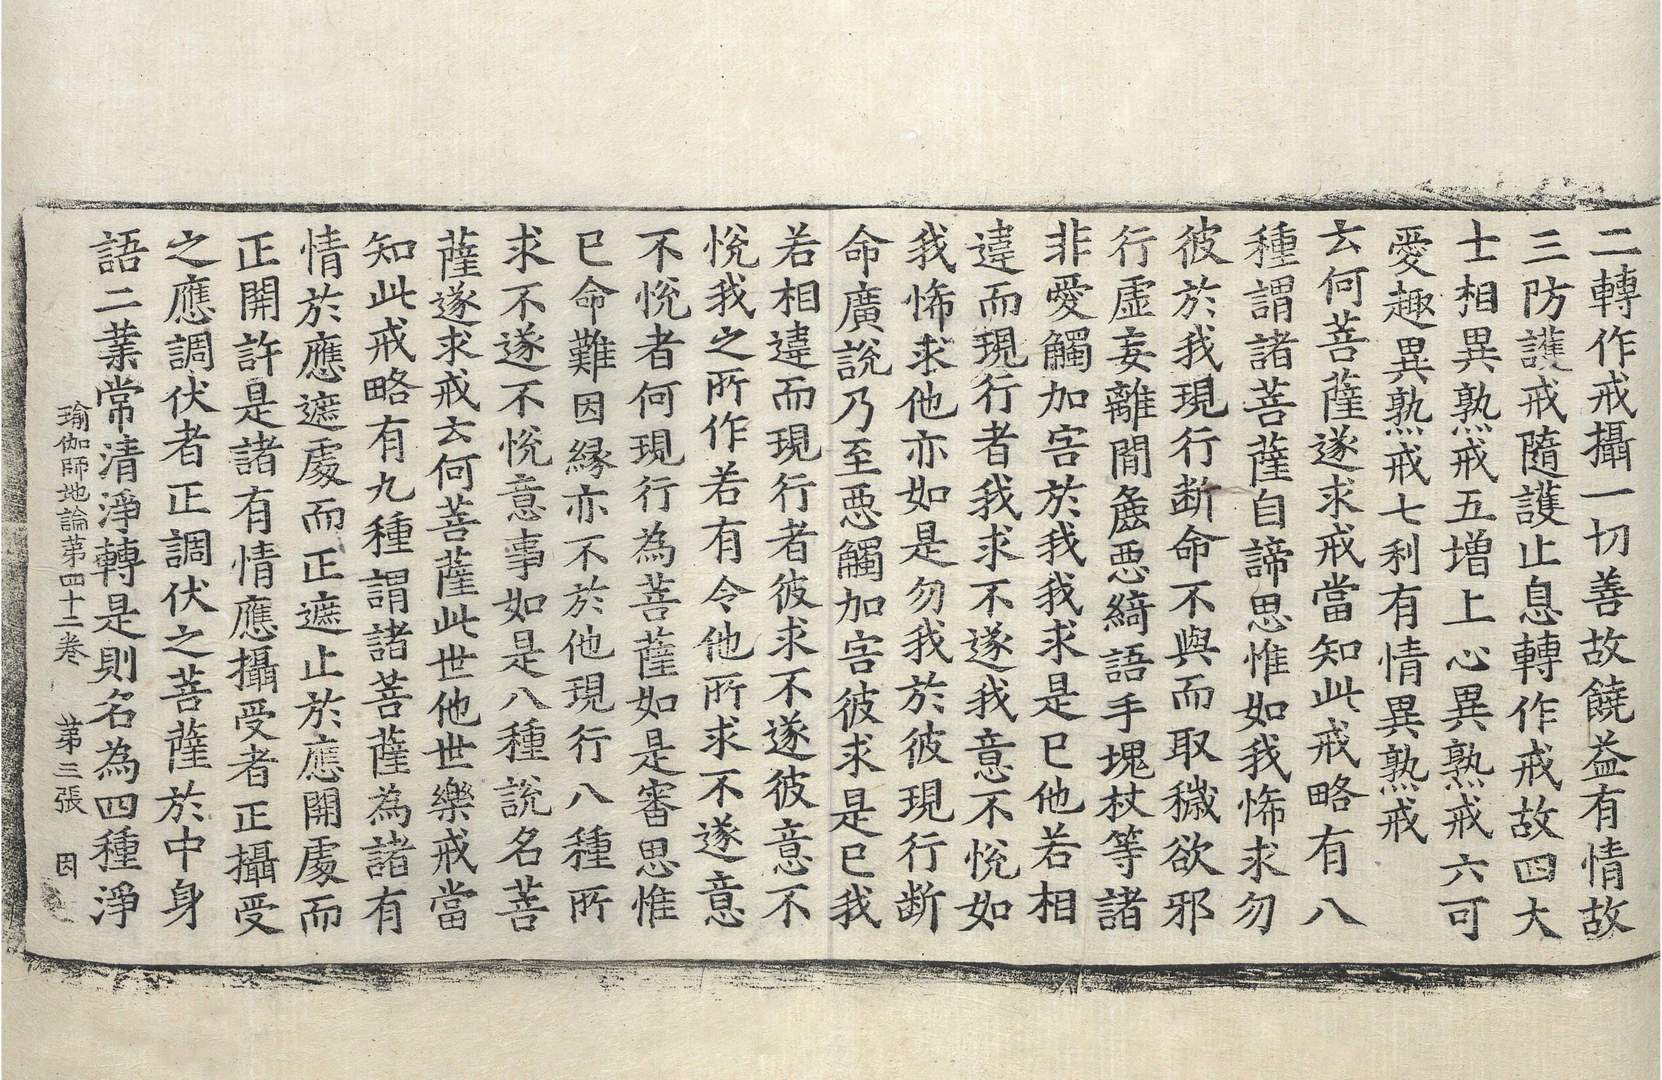 二轉作戒攝一切善故饒益有情故
三防護戒隨護止息轉作戒故四大
士相異熟戒五增上心異熟戒六可
愛趣異熟戒七利有情異熟戒
云何菩薩遂求戒當知此戒略有八
種謂諸菩薩自諦思惟如我悕求勿
彼於我現行斷命不與而取穢欲邪
行虛妄離間麁惡綺語手塊杖等諸
非愛觸加害於我我求是已他若相
違而現行者我求不遂我意不悅如
我悕求他亦如是勿我於彼現行斷
命廣說乃至惡觸加害彼求是已我
若相違而現行者彼求不遂彼意不
悅我之所作若有令他所求不遂意
不悅者何現行為菩薩如是審思惟
已命難因緣亦不於他現行八種所
求不遂不悅意事如是八種說名菩
薩遂求戒云何菩薩此世他世樂戒當
知此戒略有九種謂諸菩薩為諸有
情於應遮處而正遮止於應開處而
正開許是諸有情應攝受者正攝受
之應調伏者正調伏之菩薩於中身
語二業常清淨轉是則名為四種淨
瑜伽師地論第四十二卷 第三張 因